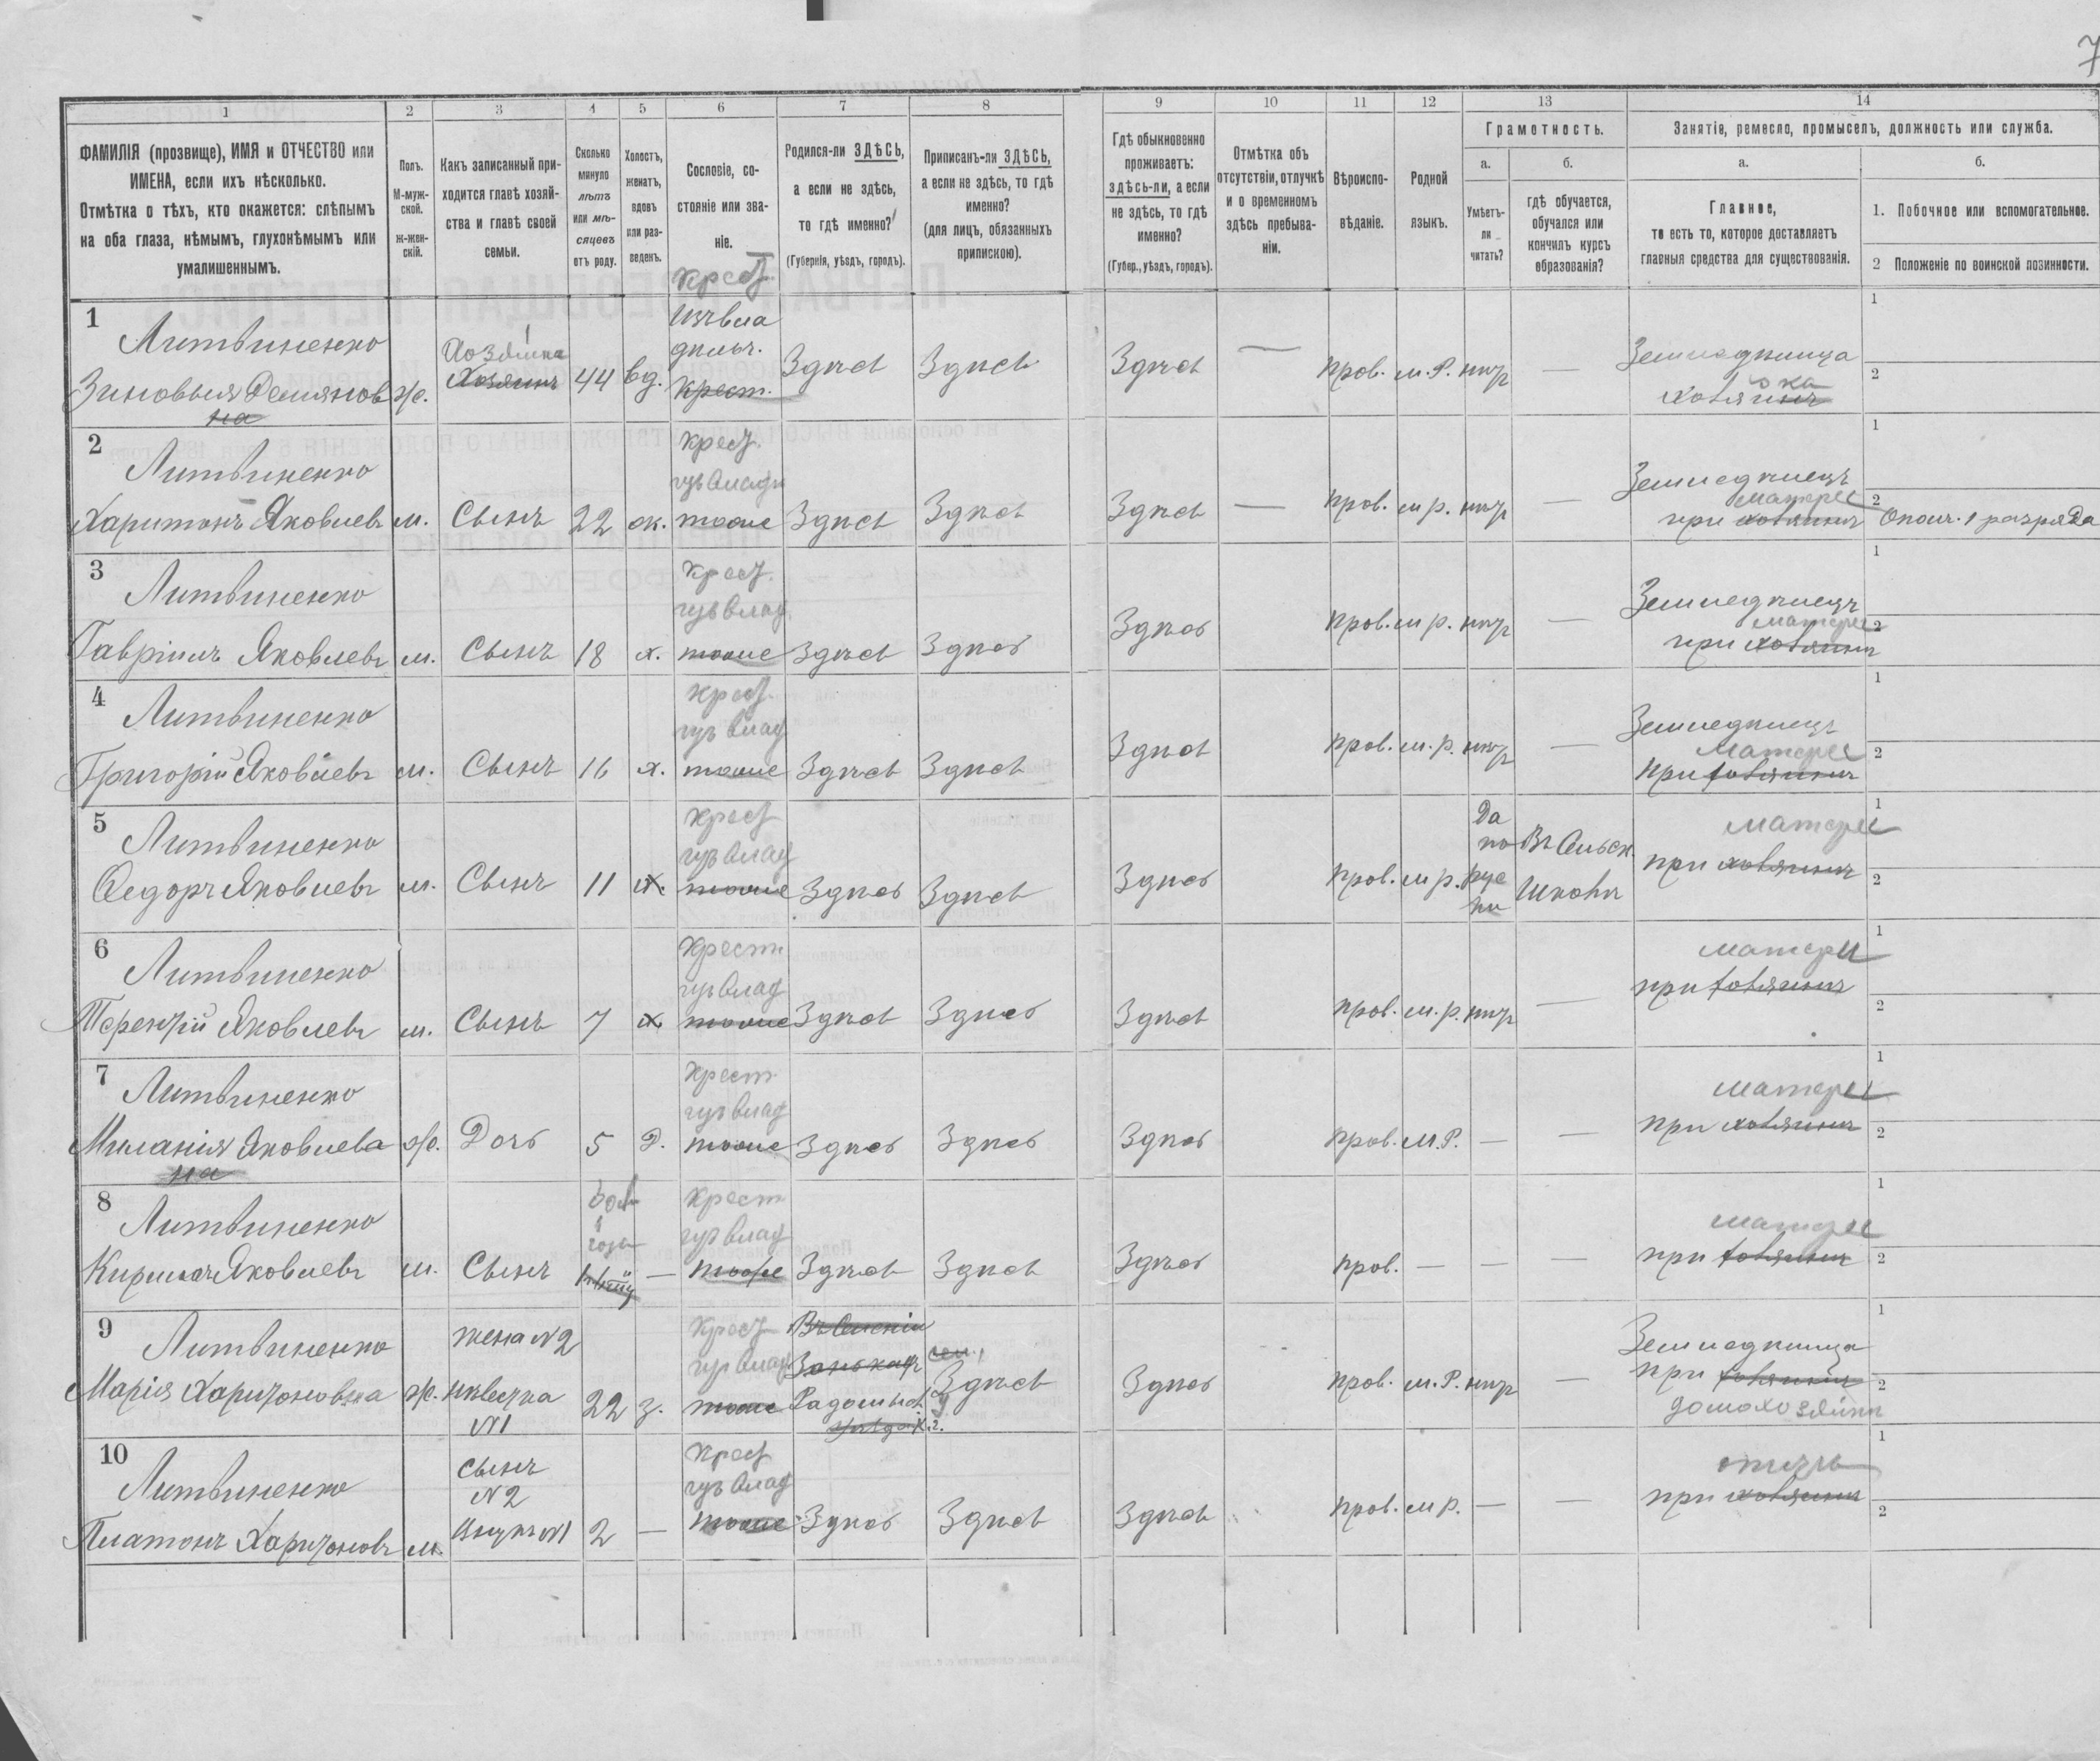 7
1 2 3 4 5 6 7 8 9 10 11 12 13 14
ФАМИЛІЯ (прозвище), ИМЯ и ОТЧЕСТВО или
ИМЕНА, если ихъ нѣсколько.
Отмѣтка о тѣхъ, кто окажется: слѣпымъ
на оба глаза, нѣмымъ, глухонѣмымъ или
умалишеннымъ.
Полъ.
М-муж-
ской.
ж-жен-
скій.
Какъ записанный при-
ходится главѣ хозяй-
ства и главѣ своей
семьи.
Сколько
минуло
лѣтъ
или мѣ-
сяцевъ
отъ роду.
Холостъ,
женатъ,
вдовъ
или раз-
веденъ.
Сословіе, со-
стояніе или зва-
ніе.
Родился-ли ЗДѢСЬ,
а если не здѣсь,
то гдѣ именно?
(Губернія, уѣздъ, городъ).
Приписанъ-ли ЗДѢСЬ,
а если не здѣсь, то гдѣ
именно?
(для лицъ, обязанныхъ
припискою).
Гдѣ обыкновенно
проживаетъ:
здѣсь-ли, а если
не здѣсь, то гдѣ
именно?
(Губер., уѣздъ, городъ).
Отмѣтка объ
отсутствіи, отлучкѣ
и о временномъ
здѣсь пребыва-
ніи.
Вѣроиспо-
вѣданіе.
Родной
языкъ.
Грамотность.
а.
Умѣетъ-
ли
читать?
б.
гдѣ обучается,
обучался или
кончилъ курсъ
образованія?
Занятіе, ремесло, промыселъ, должность или служба.
а.
Главное,
то есть то, которое доставляетъ
главныя средства для существованія.
б.
1. Побочное или вспомогательное.
2 Положеніе по воинской повинности.
1
Литвиненко
Зиновыя Демянов
на
ж.
Хозяйка
Хозяинъ
44
вд.
Крест
Изъ вла
дѣльч.
Крест.
Здѣсь
Здѣсь
Здѣсь
—
прав.
м. р.
нѣт
—
Земледѣлица
хозяйка
1
2
2
Литвиненко
Харитонъ Яковлевъ
м.
Сынъ
22
ж.
крест.
изъ влад
тоже
Здѣсь
Здѣсь
Здѣсь
—
прав.
м р.
нѣт
—
Земледѣлецъ
матери
при хозяинѣ
1
2
Ополч. 1 разряда
3
Литвиненко
Гавріилъ Яковлевъ
м.
Сынъ
18
х.
крест.
изъ влад
тоже
Здѣсь
Здѣсь
Здѣсь
прав.
м р.
нѣт
—
Земледѣлецъ
матери
при хозяинѣ
1
2
4
Литвиненко
Григорій Яковлевъ
м.
Сынъ
16
х.
крест
изъ влад
тоже
Здѣсь
Здѣсь
Здѣсь
прав.
м. р.
нѣт
—
Земледѣлецъ
матери
при хозяинѣ
1
2
5
Литвиненко
Федоръ Яковлевъ
м.
Сынъ
11
х.
крест
изъ влад
тоже
Здѣсь
Здѣсь
Здѣсь
прав.
м р.
Да
по
рус
ки
Въ Сельск
школѣ
матери
при хозяинѣ
1
2
6
Литвиненко
Терентій Яковлевъ
м.
Сынъ
7
х.
крест
изъ влад
тоже
Здѣсь
Здѣсь
Здѣсь
прав.
м. р.
нѣт
—
матери
при хозяинѣ
1
2
7
Литвиненко
Миланія Яковлева
на
ж.
Дочь
5
д.
крест
изъ влад
тоже
Здѣсь
Здѣсь
Здѣсь
прав.
м. р.
—
—
матери
при хозяинѣ
1
2
8
Литвиненко
Кирилъ Яковлевъ
м.
Сынъ
1
года
—
крест
изъ влад
тоже
Здѣсь
Здѣсь
Здѣсь
прав.
—
—
—
матери
при хозяинѣ
1
2
9
Литвиненко
Марія Харитоновна
ж.
жена N2
невестка
N1
22
з.
крест
изъ влад
тоже
Радомысл
Здѣсь
Здѣсь
прав.
м. р.
нѣт
—
Земледѣлица
при хозяинѣ
домохозяйки
1
2
10
Литвиненко
Платонъ Харитоновъ
м.
сынъ
N2
Внукъ N1
2
—
крест
изъ влад
тоже
Здѣсь
Здѣсь
Здѣсь
прав.
м р.
—
—
отцѣ
при хозяинѣ
1
2